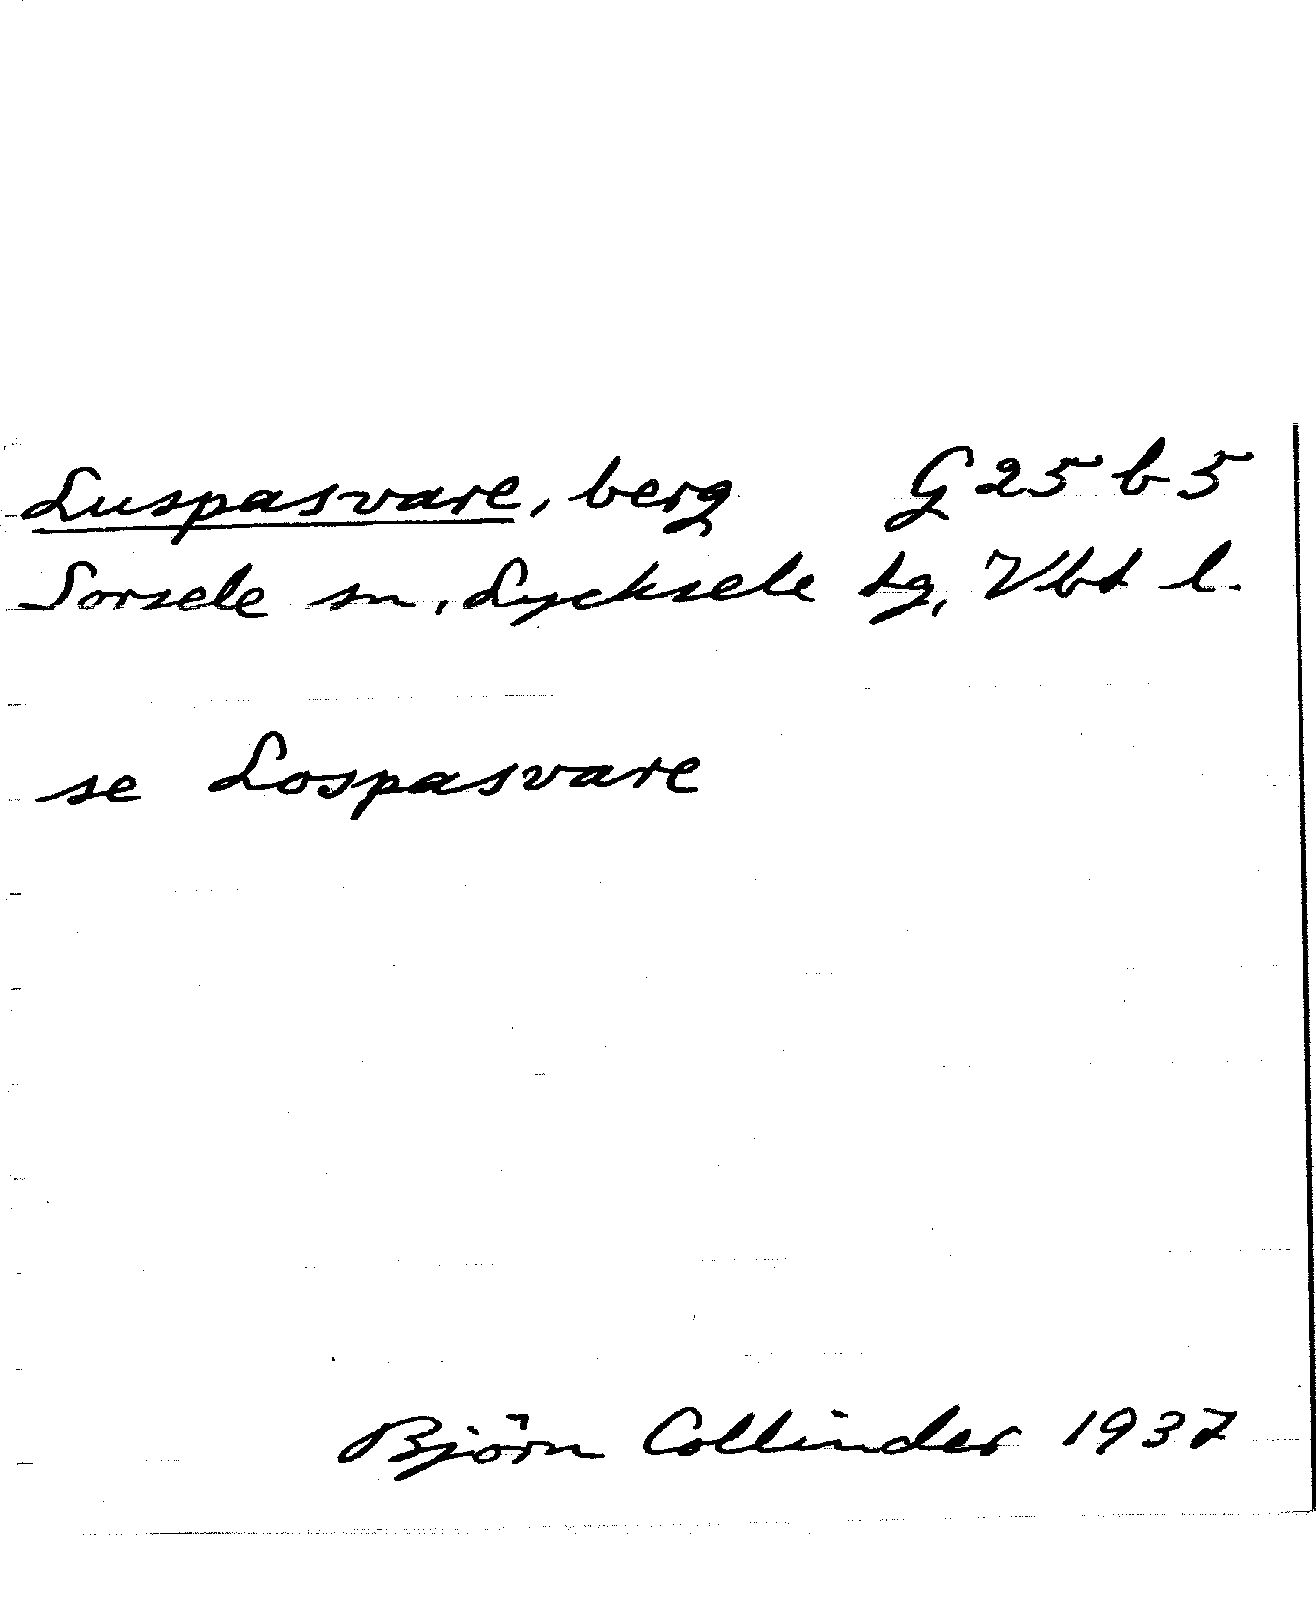 Luspasvare, berg G 25 b 5
Sorsele sn, Lycksele tg, Vbt l.
se Lospasvare
Björn Collinder 1937